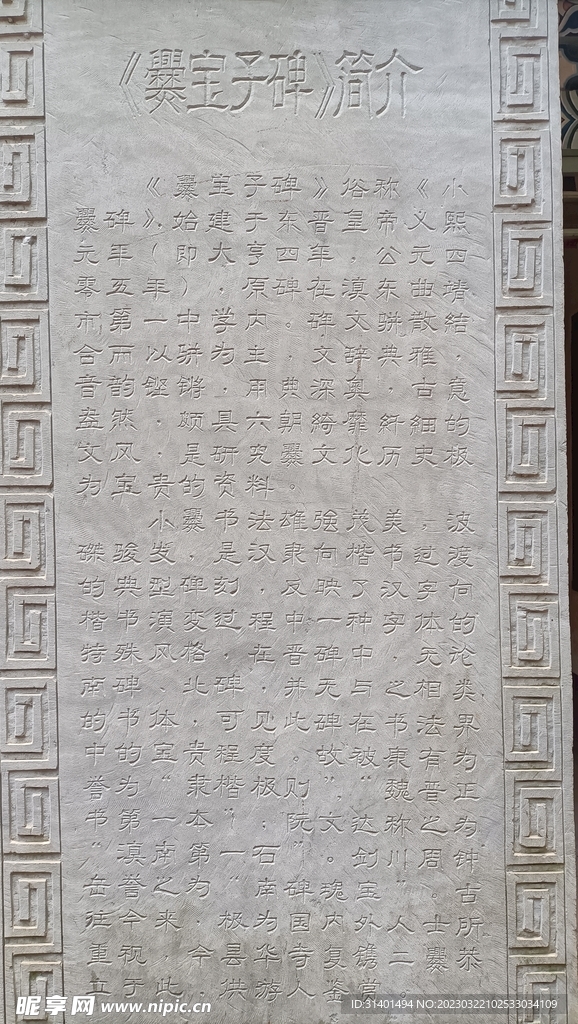 《爨宝子碑》简介
《爨宝子碑》俗称《小
爨碑》始建于东晋皇帝义熙
元年(即大亨四年公元四
零五年),原碑在滇东曲靖
市第一中学内。碑文骈散結
合而以骈为主,文辞典雅,
音韵铿锵,用典深奥,古意
盎然,颇具六朝绮靡纤细的
文风,是研究爨文化历史板
为宝贵的资料。
小爨书法雄强茂美,波
磔骏发,是汉隶向楷书过渡
的典型碑刻,反映了汉字向
楷书演变过程中一种字体的
特殊风格,在晋碑中,无论
南碑,北碑,并无与之相类
的书体,可见此碑在书法界
中的宝贵程度。故被康有为
誉为"隶楷极则"."魏晋正
书第一本",阮文达称之为
"滇南第一石"。剑川周钟
岳誉之为"南碑瑰宝"。古
征今来,极为国内外人士所
重视,今县华寺复镌二爨恭
立于此,供游人鉴赏。
昵享网 www.nipic.cn
ID:31401494 NO:20230322102533034109